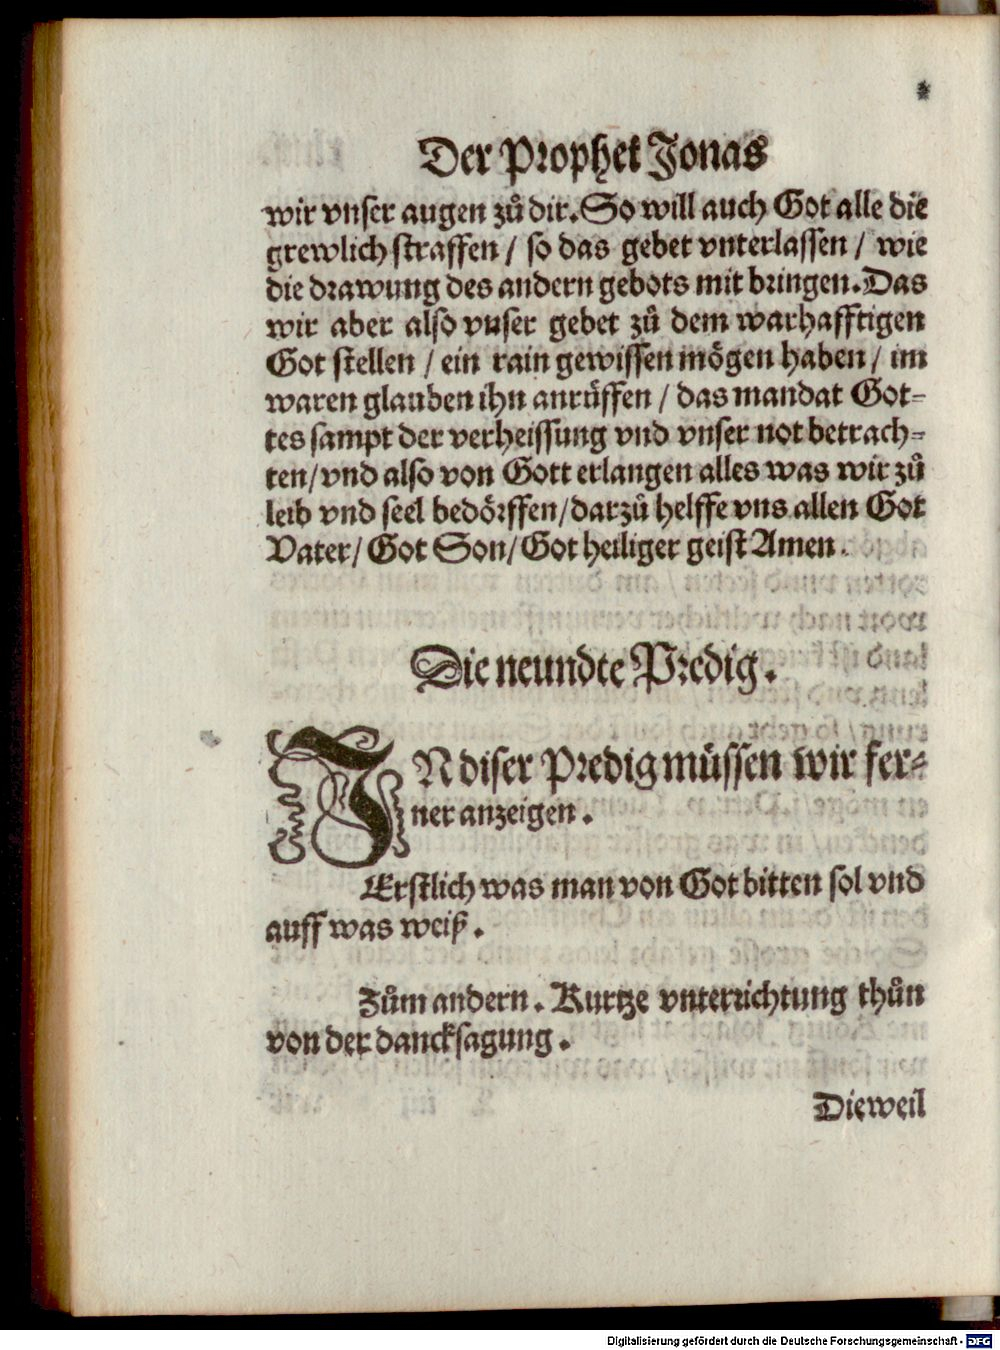 Der Prophet Jonas
wir vnser augen zů dir. So will auch Got alle die
grewlich straffen / so das gebet vnterlassen / wie
die drawung des andern gebots mit bringen. Das
wir aber also vnser gebet zů dem warhafftigen
Got stellen / ein rain gewissen mögen haben / im
waren glauben ihn anrüffen / das mandat Got-
tes sampt der verheissung vnd vnser not betrach-
ten/ vnd also von Gott erlangen alles was wir zů
leib vnd seel bedörffen/ darzů helffe vns allen Got
Vater/ Got Son/ Got heiliger geist Amen.
Die neundte Predig.
IN diser Predig müssen wir fer-
ner anzeigen.
Erstlich was man von Got bitten sol vnd
auff was weiß.
Zům andern. Kurtze vnterrichtung thůn
von der dancksagung.
Dieweil
Digitalisierung gefördert durch die Deutsche Forschungsgemeinschaft - DFG